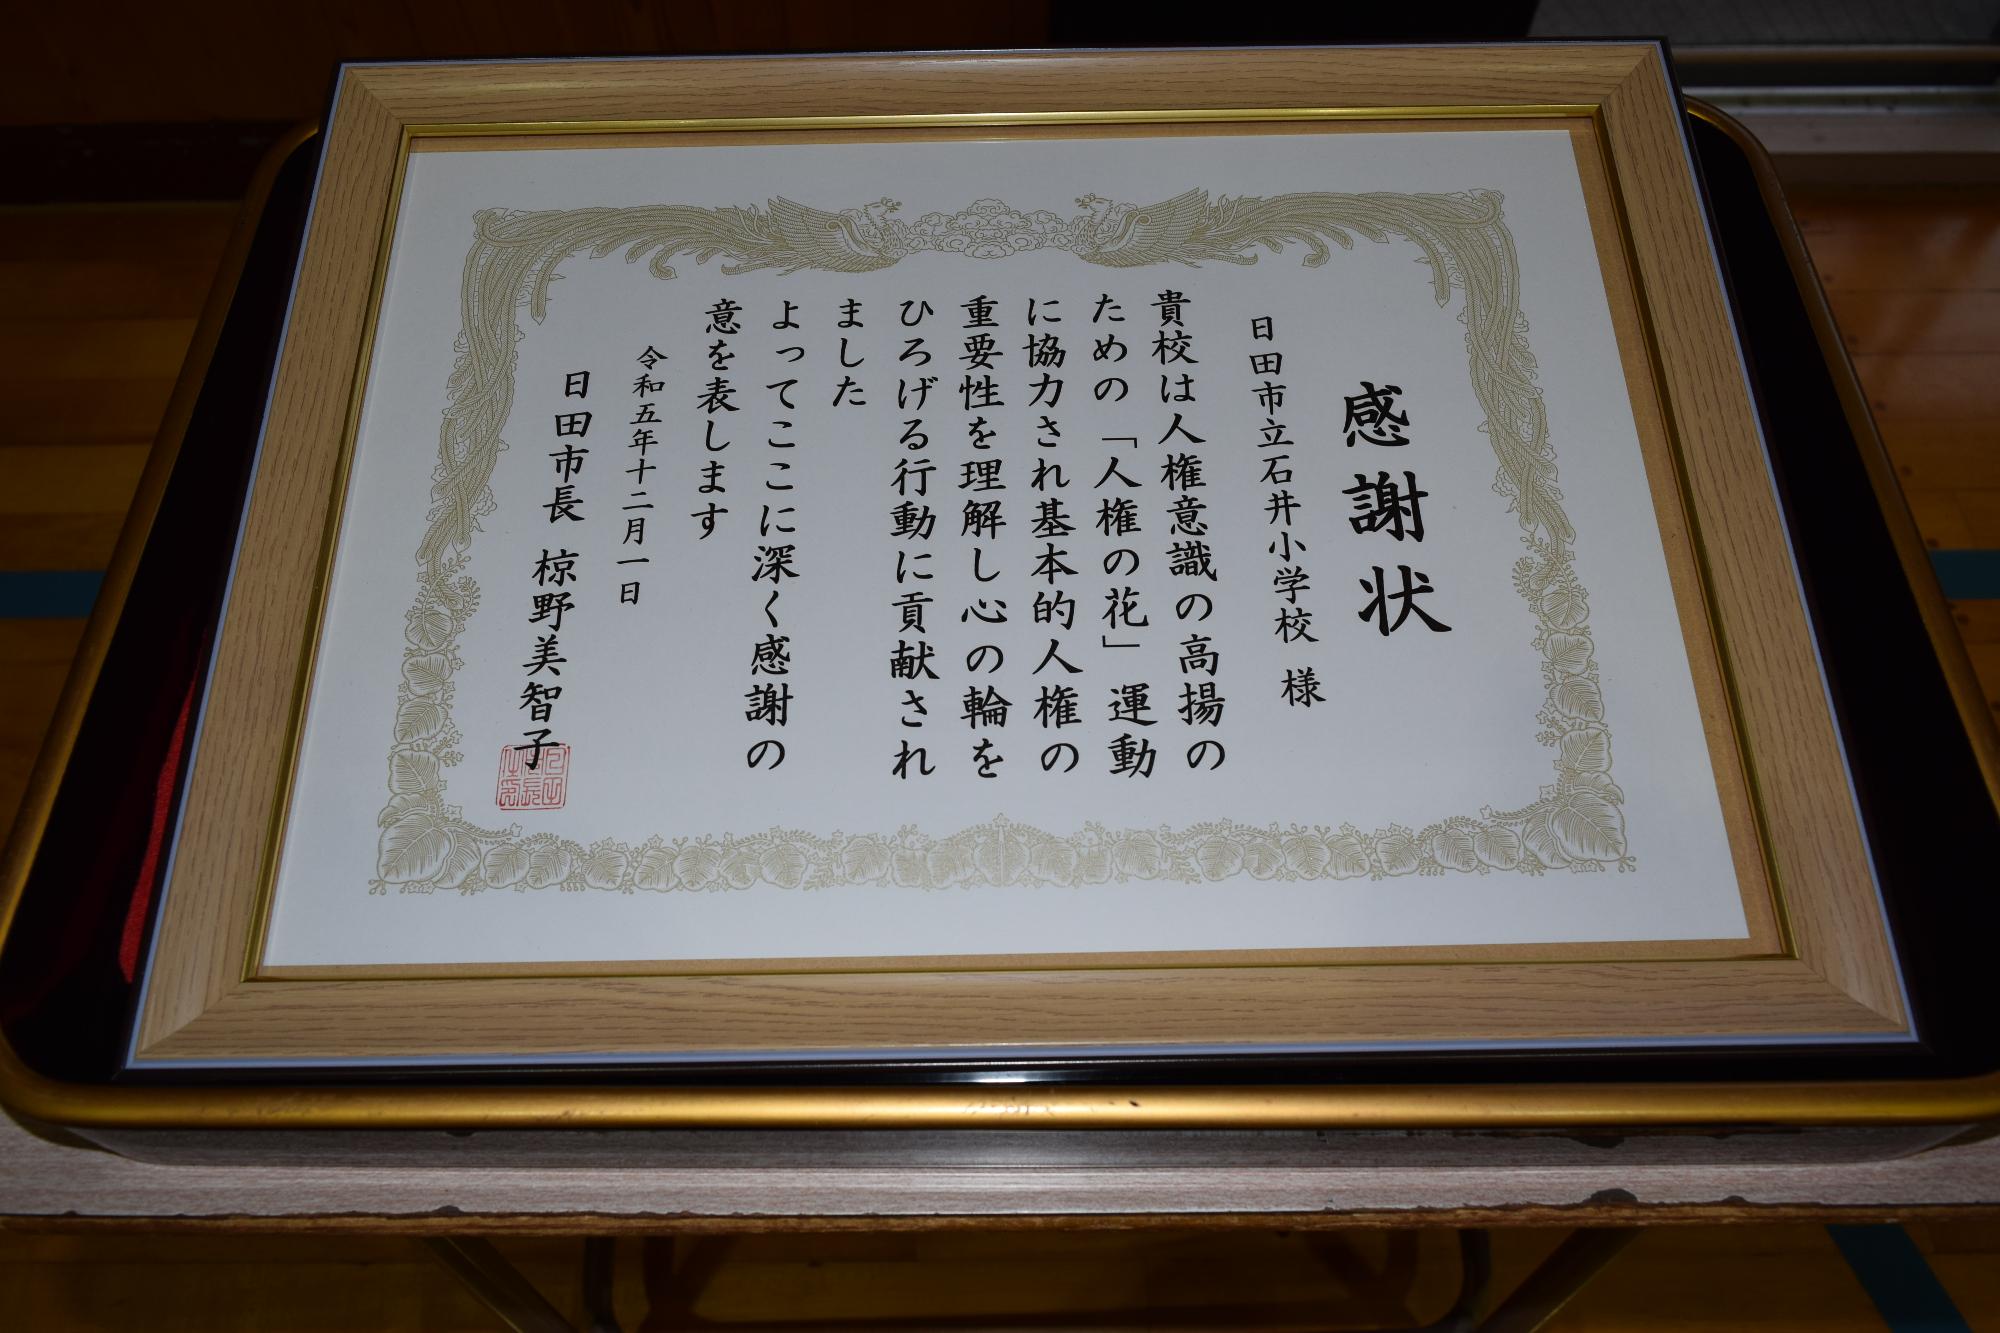 感謝状
日田市立石井小学校 様
貴校は人権意識の高揚の
ための「人権の花」運動
に協力され基本的人権の
重要性を理解し心の輪を
ひろげる行動に貢献され
ました
よってここに深く感謝の
意を表します
令和五年十二月一日
日田市長 椋野美智子